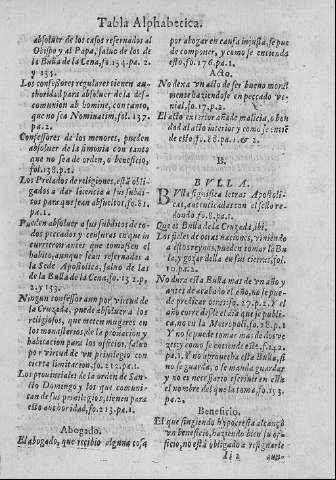 Tabla Alphabetica.
absoluer de los casos reseruados al
Obispo y al Papa, saluo de los de
la Bulla de la Cena, fo.154.pa. 2.
y 155.
Los confessores regulares tienen au-
thoridad para absoluer de la des-
comunion ab homine, con tanto,
que no sea Nominatim, fol. 137.
pa. 2.
Confessores de los menores, pueden
absoluer de la simonia con tanto
que no sea de orden, o beneficio,
fol. 138. p. 1.
Los Prelados de religiones, està obli-
gados a dar licencia a sus subdi-
tos para que sean absueltos, fo. 81.
pa. 1.
Pueden absoluer a sus subditos de to-
dos peccados y censuras en que in-
currieron antes que tomassen el
habito, aunque sean reseruados a
la Sede Apostolica, saluo de las
de la Bulla de la Cena, fo. 152. p.
2. y 153.
Ningun confessor aun por virtud de
la Cruzada, puede absoluer a los
religiosos, que meten mugeres en
los monasterios, si la prouacion y
habitacion para los officios, saluo
por virtud de vn priuilegio con
cierta limitacion, fo. 212. pa. 1.
Los prouinciales de la orden de San-
cto Domingo y los que comuni-
can de sus priuilegios, tienen para
esto authoridad, fo. 213. pa. 1.
Abogado.
El abogado, que recibio alguna cosa
por abogar en causa injusta, se pue
de componer, y como se entienda
esto, fo. 176. pa. 1.
Acto.
No dexa vn acto de ser bueno moral
mente haziendose en peccado ve-
nial, fo. 17. p. 2.
El acto exterior añade malicia, o bon
dad al acto interior y como se entiēde
de esto f. 88. pa. 1. & 2.
B.
BVLLA.
BVlla significa letras Apostoli-
cas, autenticadas con el sello re-
dondo fo. 8. pa. 1.
Que es Bulla de la Cruzada, ibi.
Los fieles de otras naciones, viniendo
a estos reynos, pueden tomar la Bu-
lla, y gozar della en sus tierras, fol.
10. pa. 2.
No dura esta Bulla mas de vn año y
antes de acabado el año, no se pue-
de predicar otra, fo. 27. p. 2. Y el
año corre desde el dia que se publi-
ca, no en la Metropoli, fo. 28. p. 1
Y no se puede tomar mas de dos ve-
zes y como se entiende esto, fo. 242.
pa. 1. Y no aprouecha esta Bulla, si
no se guarda, o se manda guardar
y no es necessario escriuir en ella
el nombre del que la toma, fo. 153.
pa. 1.
Beneficio.
El que fingiendo hypocresia alcançò
vn beneficio, haziendo bien su of-
ficio, no està obligado a resignarle
Ii 2 aun-